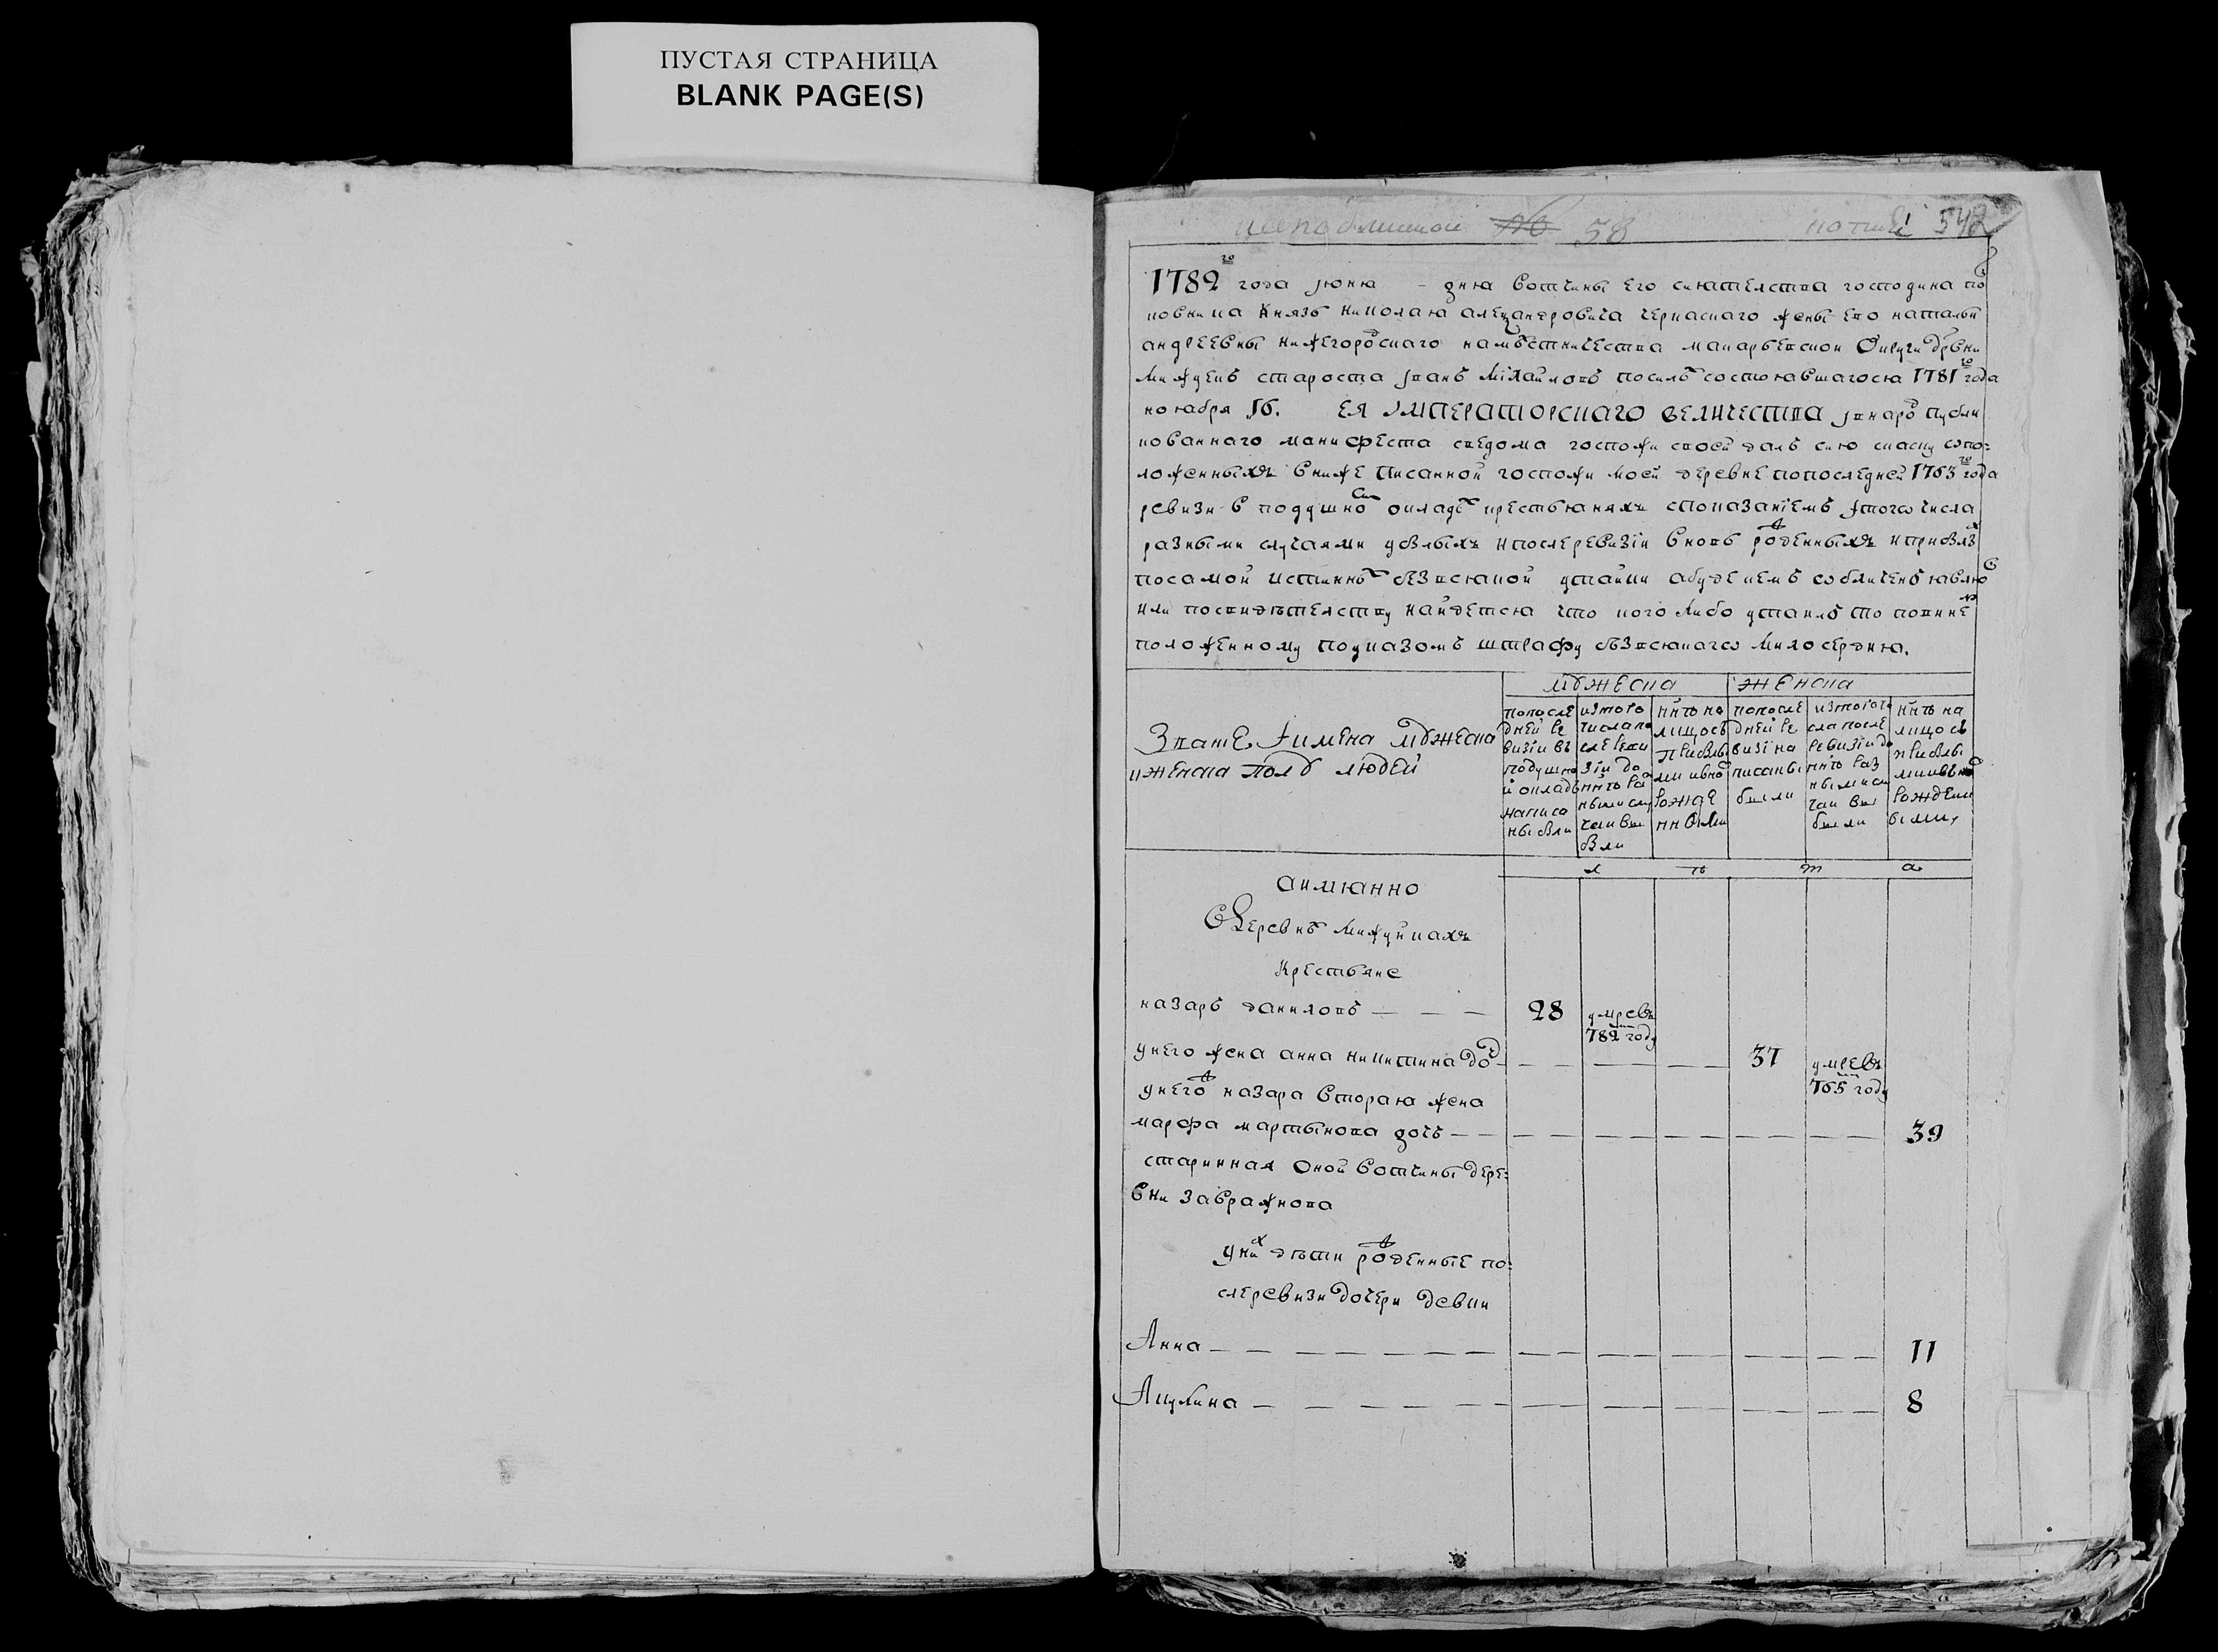 ПУСТАЯ СТРАНИЦА
BLANK PAGE(S)
58 542
1782го года июня – дня вотчины его сиятелства господина по
ковника князь николая александровича черкаскаго жены ево натальи
андреевны нижегородскаго наместничества макарьевской округи дрвни
староста иванъ михайловъ посилѣ состоявшагося 1781го года
ноября 16. ея императорскаго величества внародъ публи
кованнаго манифеста сведома госпожи своей далъ сию скаску ополо=
ложенныхъ внижеписанной госпожи моей деревне попоследней 1763го года
ревизи в подушной окладъ крестьянахъ споказаниемъ изтого числа
разными случаями убылыхъ ипослеревизии вновь рожденныхъ иприбылых
посамой истиннѣ безвсякой утайки абуде кемъ обличенъ явлюс
или посвидѣтелству найдется что кого либо утаилъ то повинен
положенному поуказомъ штрафу безвсякаго милосердия.
мужеска женска
Званье имена мужеска
иженска полу людей
попосле дней ревизии въ подушной окладъ написаны были
изтого числа после ревизии до нынѣ разными случаи выбыли
ннѣ на лицо съ прибылыми ивновь рожденными
попосле дней ревизи написаны были
изтого числа после ревизии до ннѣ разными случаи выбыли
ннѣ на лицо съ прибылыми ивновь рожденными
л ѣ т а
аимянно
Вдеревнѣ
крестьяне
назаръ даниловъ — — — 28 умревъ 782м году
унего жена анна никитина доч — — — 37 умревъ 765м году
унегож назара вторая жена
марфа мартынова дочь — — — 39
старинная оной вотчины дере=
вни завражнова
уних дѣти рожденные по=
слеревизи дочери девки
Анна — — — 11
Акулина — — — 8